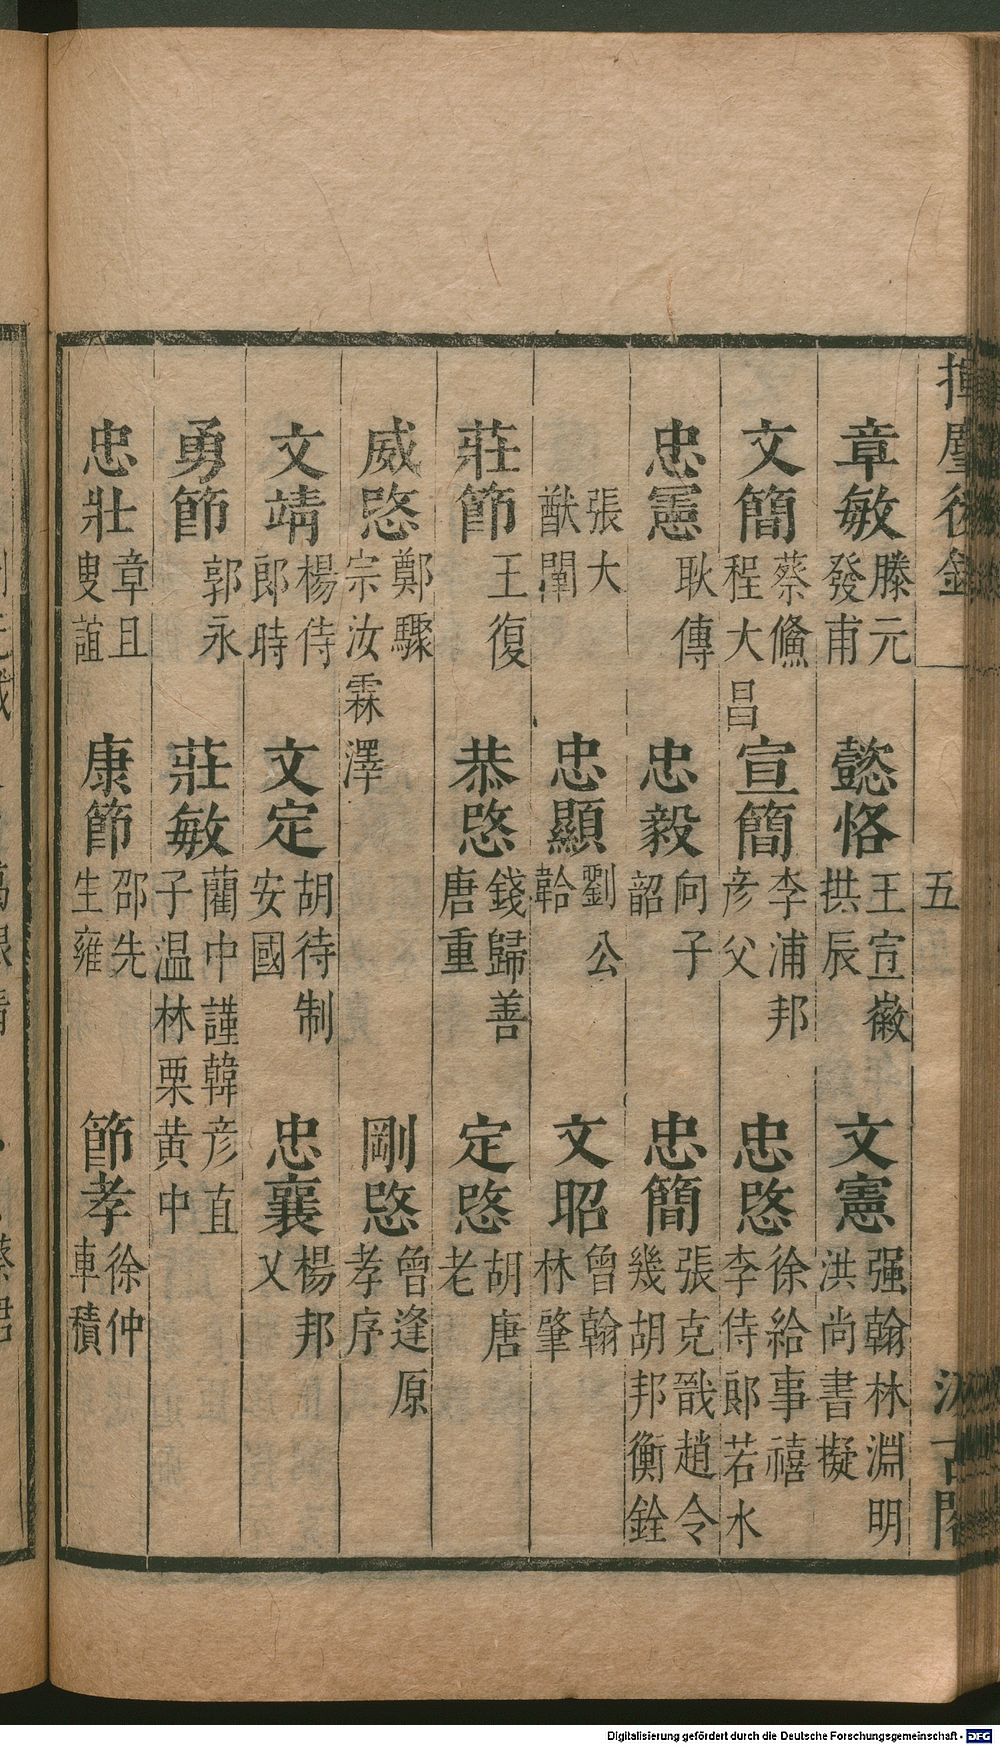 揮麈後錄 五 汲古閣
章敏 滕元發甫 懿恪 王宣徽拱辰 文憲 强翰林淵明洪尚書擬
文簡 蔡儵程大昌 宣簡 李浦邦彦父 忠愍 徐給事禧李侍郎若水
忠憲 耿傳 忠毅 向子韶 忠簡 張克戩趙令幾胡邦衡銓
張大猷闡 忠顯 劉公韐 文昭 曾翰林肇
莊節 王復 恭愍 錢歸善唐重 定愍 胡唐老
威愍 鄭驟宗汝霖澤 剛愍 曾逢原孝序
文靖 楊侍郎時 文定 胡待制安國 忠襄 楊邦乂
勇節 郭永 莊敏 藺中謹韓彦直子温林栗黄中
忠壯 章且叟誼 康節 邵先生雍 節孝 徐仲車積
Digitalisierung gefördert durch die Deutsche Forschungsgemeinschaft - DFG